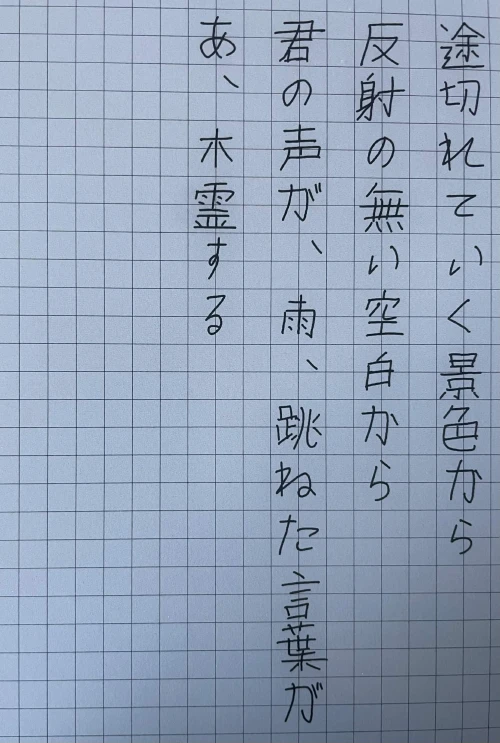 途切れていく景色から
反射の無い空白から
君の声が、雨、跳ねた言葉が
あ、木霊する